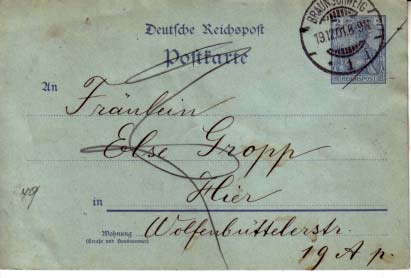 Deutsche Reichspost
Postkarte
BRAUNSCHWEIG
19.12.01.8-9N
1
REICHSPOST
An
Fräulein
Else Gropp
in Hier
Wohnung
(Straße und Hausnummer)
Wolfenbüttelerstr.
19 A p.
49